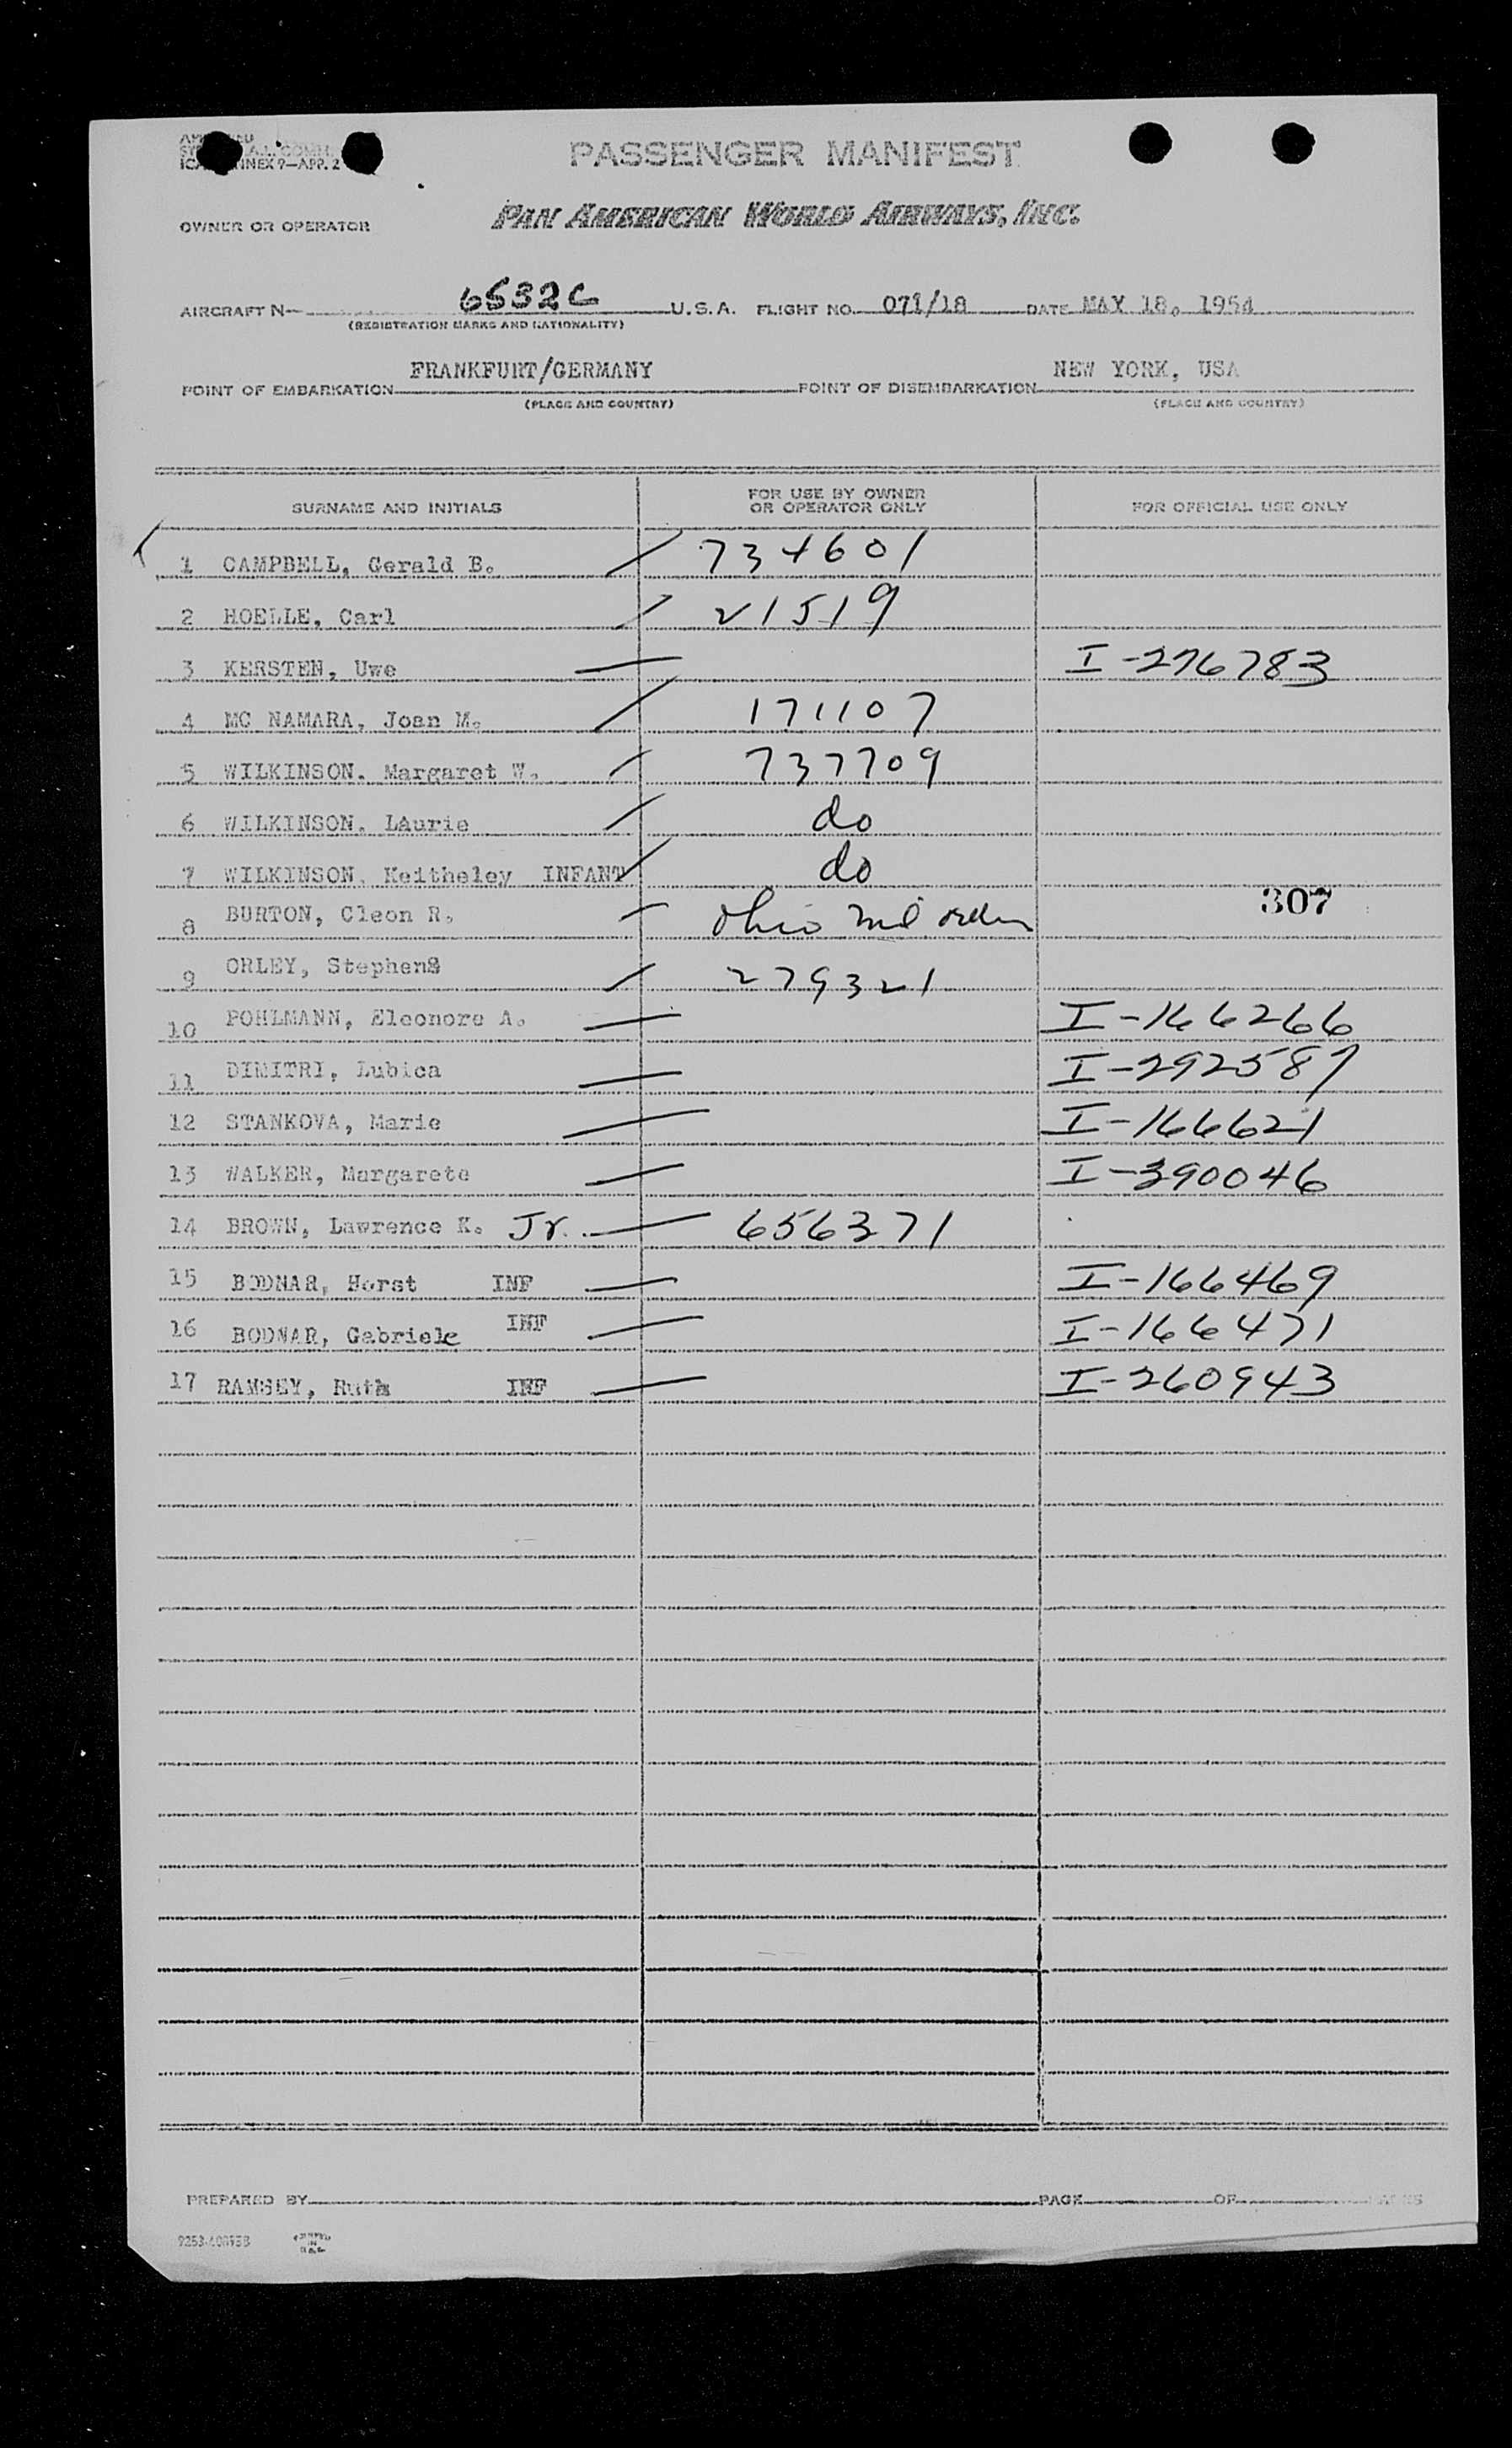 PASSENGER MANIFEST
ICA ANNEX 9—APP. 2
OWNER OR OPERATOR PAN AMERICAN WORLD AIRWAYS, INC.
AIRCRAFT N— 6532C U.S.A. FLIGHT NO. 071/18 DATE MAY 18, 1954
(REGISTRATION MARKS AND NATIONALITY)
POINT OF EMBARKATION FRANKFURT/GERMANY POINT OF DISEMBARKATION NEW YORK, USA
(PLACE AND COUNTRY) (PLACE AND COUNTRY)
SURNAME AND INITIALS FOR USE BY OWNER OR OPERATOR ONLY FOR OFFICIAL USE ONLY
1 CAMPBELL, Gerald B. 734601
2 HOELLE, Carl 21519
3 KERSTEN, Uwe I-276783
4 MC NAMARA, Joan M. 171107
5 WILKINSON. Margaret W. 737709
6 WILKINSON. LAurie do
7 WILKINSON. Keitheley INFANT do
307
8 BURTON, Cleon R. Ohio mil orders
9 ORLEY, StephenS 279321
10 POHLMANN, Eleonore A. I-166266
11 DIMITRI, Lubica I-292587
12 STANKOVA, Marie I-166621
13 WALKER, Margarete I-390046
14 BROWN, Lawrence K. Jr. 656371
15 BODNAR, Horst INF I-166469
16 BODNAR, Gabriele INF I-166471
17 RAMSEY, Ruth INF I-260943
PREPARED BY PAGE OF
PRINTED IN U.S.A.